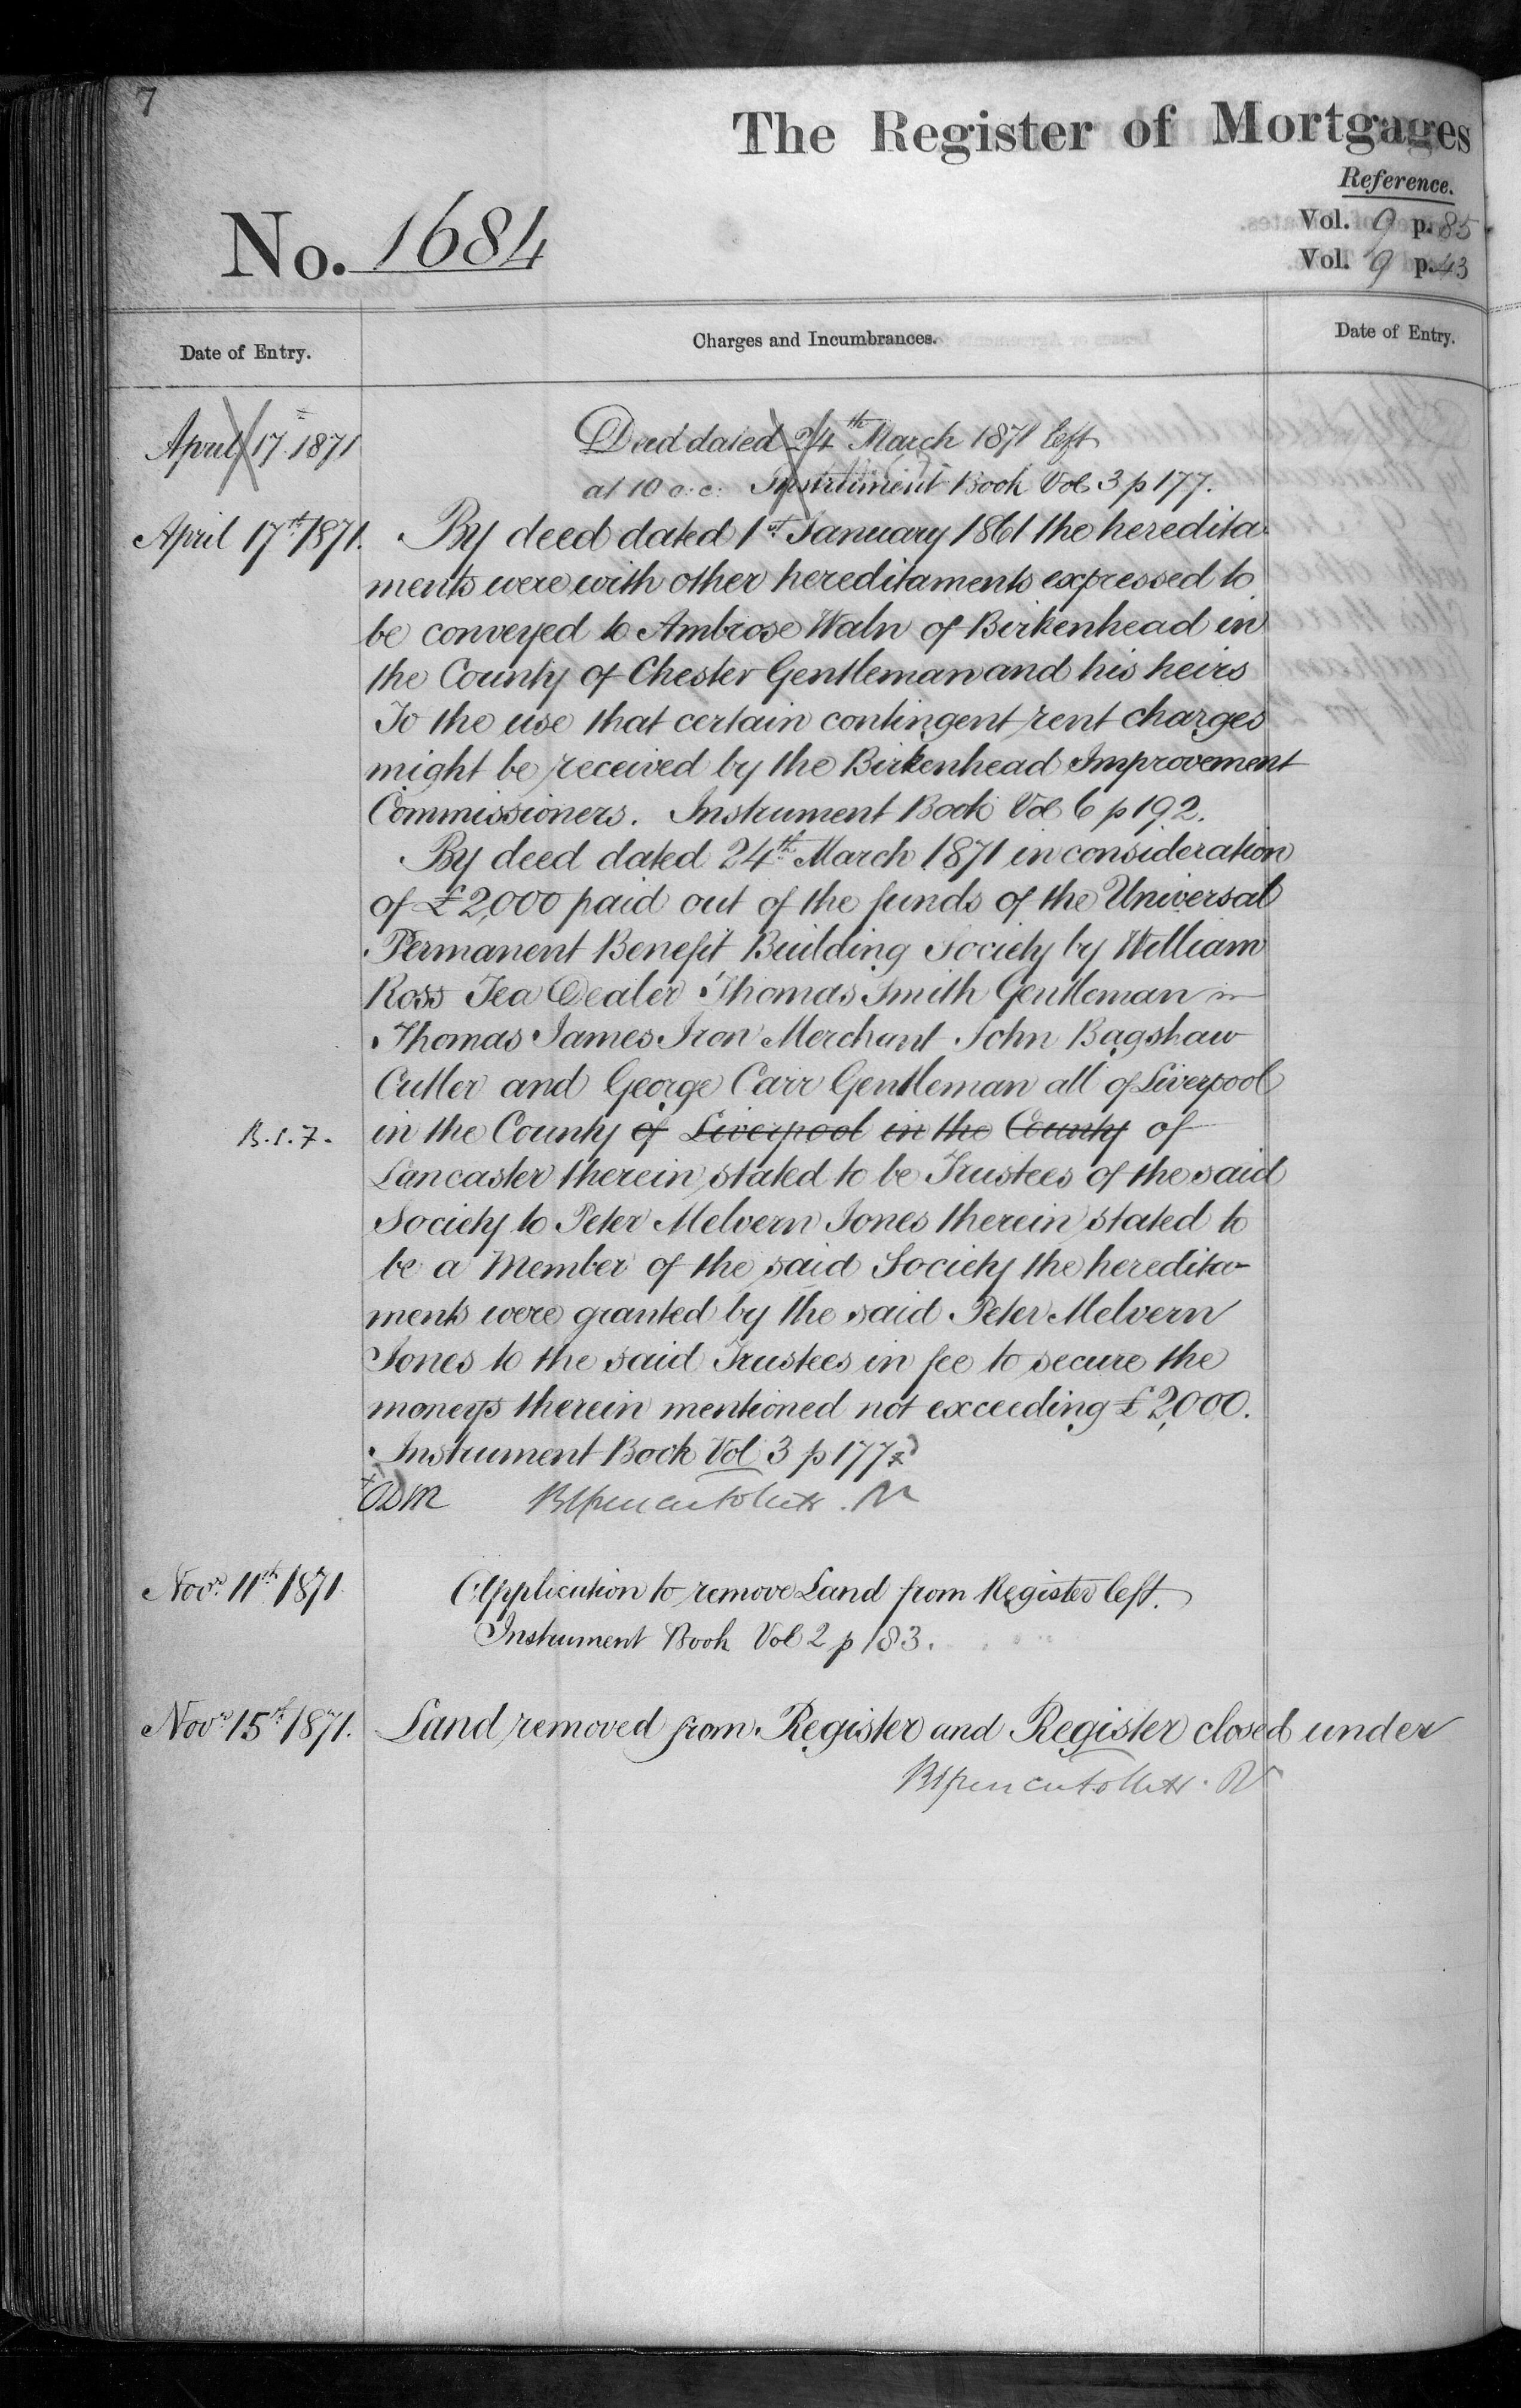 7
The Register of Mortgages
Reference.
No. 1684
Vol. 9 p. 85
Vol. 9 p. 43
Date of Entry.
Charges and Incumbrances.
Date of Entry.
April 17 1871
Deed dated 24th March 1871 left
at 10 o.c. Instrument Book Vol 3 p 177.
April 17th 1871.
By deed dated 1st January 1861 the heredita-
ments were with other hereditaments expressed to
be conveyed to Ambrose Waln of Birkenhead in
the County of Chester Gentleman and his heirs
To the use that certain contingent rent charges
might be received by the Birkenhead Improvement
Commissioners. Instrument Book Vol 6 p 192.
By deed dated 24th March 1871 in consideration
of £2,000 paid out of the funds of the Universal
Permanent Benefit Building Society by William
Ross Tea Dealer Thomas Smith Gentleman
Thomas James Iron Merchant John Bagshaw
Cutler and George Carr Gentleman all of Liverpool
B.S.7.
in the County of Liverpool in the County of
Lancaster therein stated to be Trustees of the said
Society to Peter Melvern Jones therein stated to
be a Member of the said Society the heredita-
ments were granted by the said Peter Melvern
Jones to the said Trustees in fee to secure the
moneys therein mentioned not exceeding £2,000.
Instrument Book Vol 3 p 177
Novr. 11th 1871.
Application to remove Land from Register left.
Instrument Book Vol 2 p 183.
Novr. 15th 1871.
Land removed from Register and Register closed under